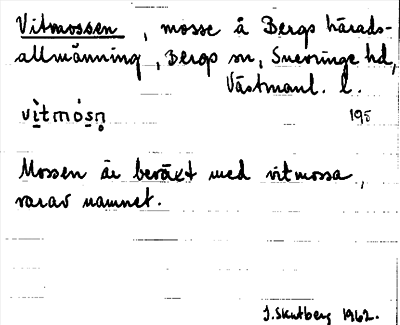 Vitmossen, mosse å Bergs härads-
allmänning, Bergs sn, Snevringe hd,
Västmanl. l.
vìtmósn̥ 195
Mossen är beväxt med vitmossa,
varav namnet.
J. Skutberg 1962.